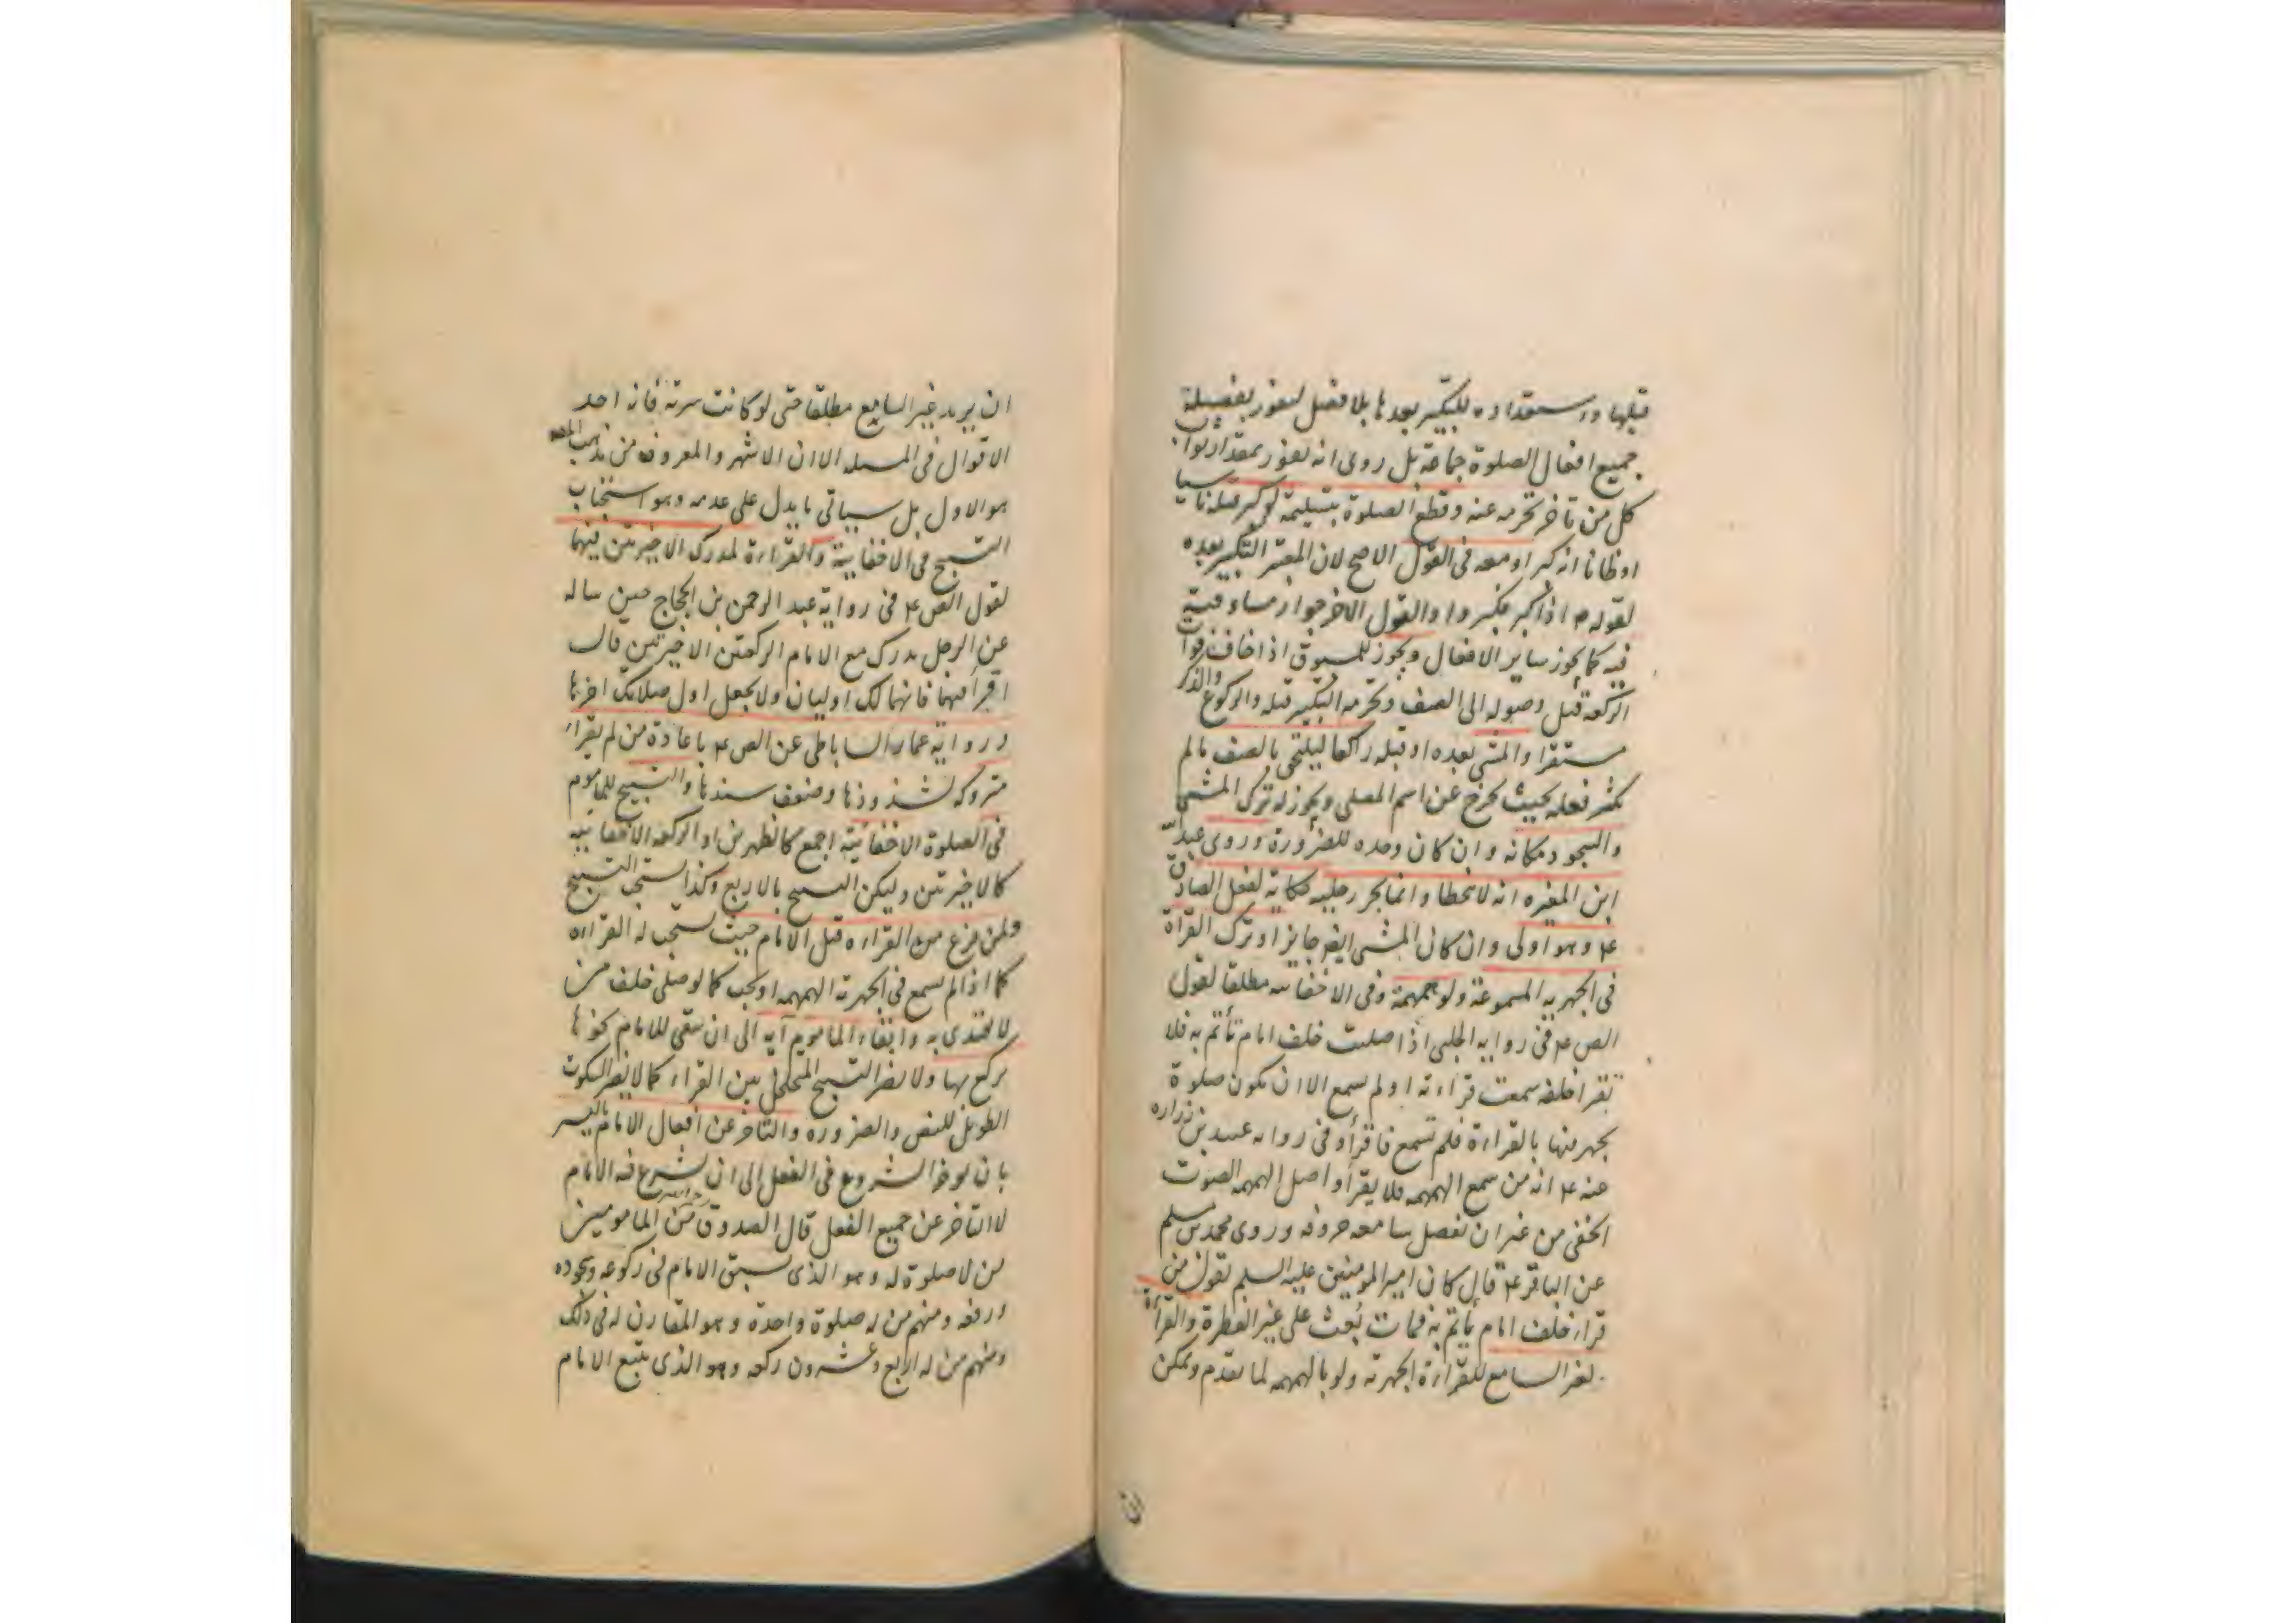 قبلها واستعداده للتكبير بعدها بلا فصل ليفوز بفضيلة
جميع افعال الصلوة جماعة بل روى انه يفوز بمقدار ثواب
كل من تاخر تحرمه عنه وقطع الصلوة بتسليمة لو كبر قبله ناسيا
او ظانا انه كبر او معه فى القول الاصح لان المعتبر التكبير بعده
لقوله ص اذا كبر فكبروا والقول الاخر جواز مساوقته
فيه كما يجوز ساير الافعال ويجوز للمسبوق اذا خاف فوات
الركعة قبل وصوله الى الصف وتحرمه التكبير قبله والركوع والذكر
مستقرا والمشى بعده او قبله راكعا ليلتحق بالصف ما لم
يكثر فعله بحيث يخرج عن اسم المصلى ويجوز له ترك المشى
والسجود مكانه وان كان وحده للضرورة وروى عبد الله
ابن المغيره انه لا يتخطا وانما يجر رجليه حكاية لفعل الصادق
ع وهو اولى وان كان المشى ايضا جايزا وترك القراة
فى الجهريه المسموعة ولو همهمة وفى الاخفاتيه مطلقا لقول
الص ع فى روايه الحلبى اذا صليت خلف امام تأتم به فلا
تقرا خلفه سمعت قراءته او لم تسمع الا ان تكون صلوة
يجهر فيها بالقراءة فلم تسمع فاقرأ وفى روايه عبيد بن زراره
عنه ع انه من سمع الهمهمه فلا يقرأ واصل الهمهمه الصوت
الخفى من غير ان تفصل سامعه حروفه وروى محمد بن مسلم
عن الباقر ع قال كان امير المومنين عليه السلم يقول من
قرا خلف امام يأتم به فمات بُعث على غير الفطرة والقرأة
لغير السامع للقراءة الجهرية ولو بالهمهمه لما تقدم ويمكن
ان يريد غير السامع مطلقا حتى لو كانت سرية فأنه احد
الاقوال فى المسله الا ان الاشهر والمعروف من مذهب المصـ
هو الاول بل سياتى ما يدل على عدمه وهو استحباب
التسبيح فى الاخفاتية والقراءة لمدرك الاخيرتين فيهما
لقول الص ع فى رواية عبد الرحمن بن الحجاج حين ساله
عن الرجل يدرك مع الامام الركعتين الاخيرتين قال
اقرأ فيهما فانهما لك اوليان ولا يجعل اول صلاتك اخرها
ورواية عمار الساباطى عن الص ع باعادة من لم يقرأ
متروكه لشذوذها وضعف سندها والتسبيح للماموم
فى الصلوة الاخفاتية اجمع كالظهرين او الركعه الاخفاتيه
كالاخيرتين وليكن التسبيح بالاربع وكذا يستحب التسبيح
ولمن فرغ من القراءه قبل الامام حيث يستحب له القراءه
كما اذا لم يسمع فى الجهرية الهمهمه او يجب كما لو صلى خلف من
لا يقتدى به وابقاء الماموم آيه الى ان ينتهى للامام نحوها
يركع بها ولا يضر التسبيح المتخلل بين القراء كما لا يضر السكوت
الطويل للنص والضروره والتاخر عن افعال الامام باليسير
بان يوخر الشروع فى الفعل الى ان يشرع فيه الامام
لا التاخر عن جميع الفعل قال الصدوق من المامومين
من لا صلوة له وهو الذى يسبق الامام فى ركوعه وسجوده
ورفعه ومنهم من له صلوة واحدة وهو المقارن له فى ذلك
ومنهم من له اربع وعشرون ركعه وهو الذى يتبع الامام